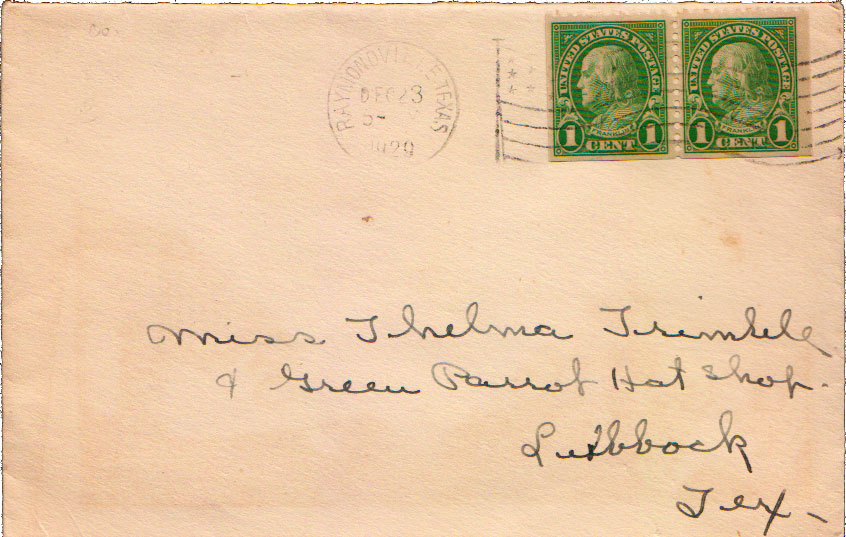 RAYMONDVILLE TEXAS
DEC 23
5-
1929
UNITED STATES POSTAGE
FRANKLIN
1 CENT 1
UNITED STATES POSTAGE
FRANKLIN
1 CENT 1
Miss Thelma Trimble
% Green Parrot Hat Shop.
Lubbock
Tex -